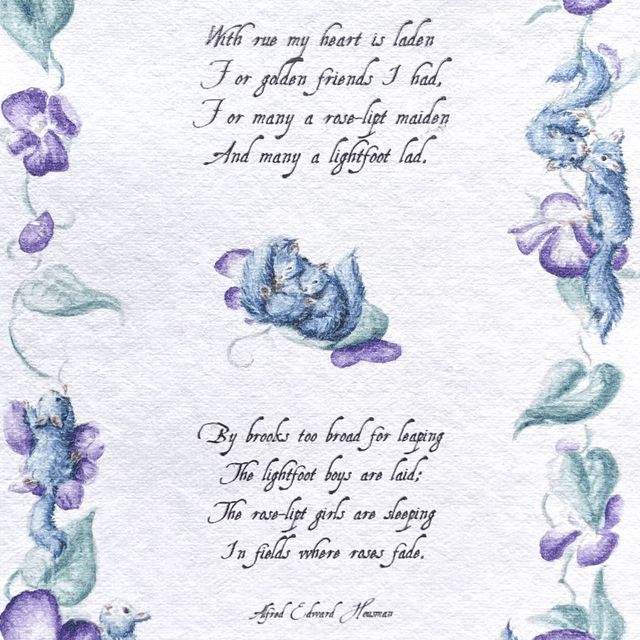 With rue my heart is laden
For golden friends I had,
For many a rose-lipt maiden
And many a lightfoot lad.
By brooks too broad for leaping
The lightfoot boys are laid;
The rose-lipt girls are sleeping
In fields where roses fade.
Alfred Edward Housman